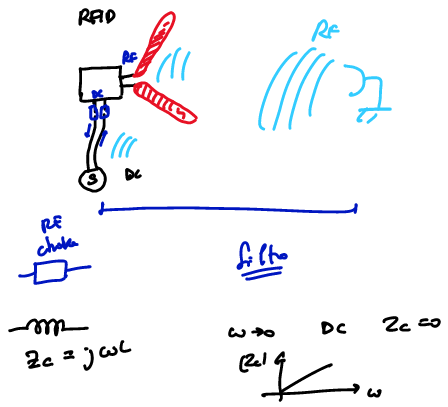 RFID
RF
RF
DC
S
DC
RF
choke
filtro
Zc = jωL
ω→0 DC Zc=0
|Zc|
ω